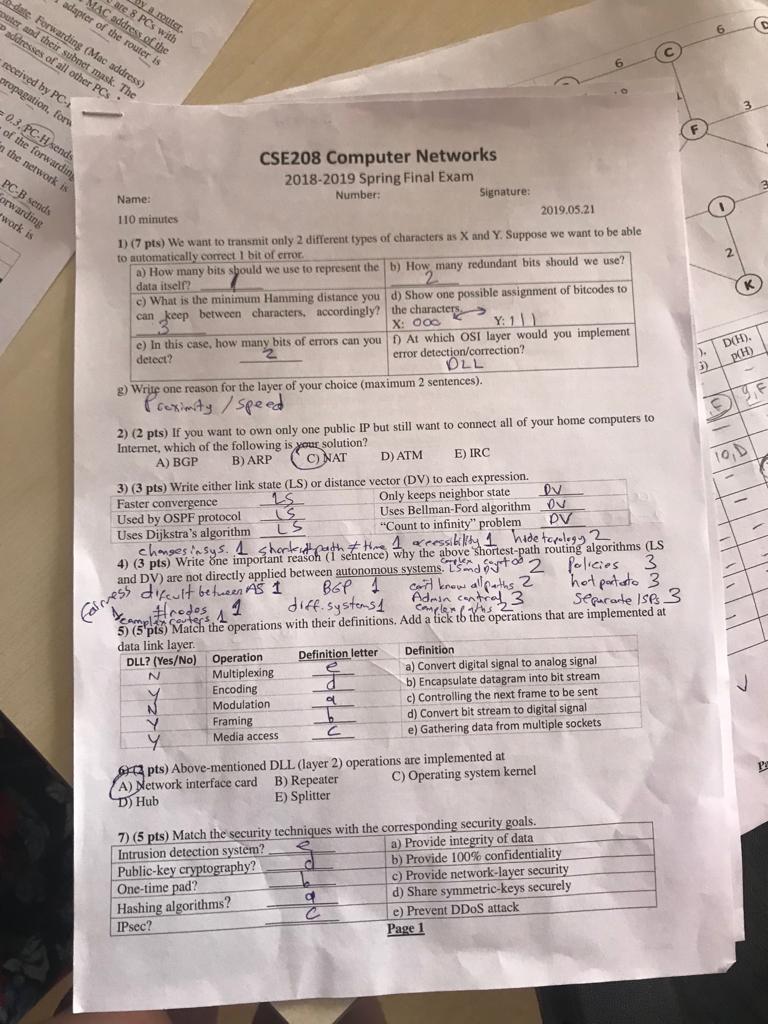 by a router.
are 8 PCs with
MAC address of the
adapter of the router is
o-date. Forwarding (Mac address)
outer and their subnet mask. The
addresses of all other PCs
received by PC-
propagation, forw
= 0.3, PC-H sends
of the forwarding
n the network is
PC-B sends
orwarding
work is
6
C
6
D
F
3
3
I
2
K
D(H),
p(H)
10,D
CSE208 Computer Networks
2018-2019 Spring Final Exam
Name: Number: Signature:
110 minutes 2019.05.21
1) (7 pts) We want to transmit only 2 different types of characters as X and Y. Suppose we want to be able
to automatically correct 1 bit of error.
a) How many bits should we use to represent the
data itself? 1
b) How many redundant bits should we use?
2
c) What is the minimum Hamming distance you
can keep between characters, accordingly?
3
d) Show one possible assignment of bitcodes to
the characters.
X: 000 Y: 111
e) In this case, how many bits of errors can you
detect? 2
f) At which OSI layer would you implement
error detection/correction?
DLL
g) Write one reason for the layer of your choice (maximum 2 sentences).
Proximity / Speed
2) (2 pts) If you want to own only one public IP but still want to connect all of your home computers to
Internet, which of the following is your solution?
A) BGP B) ARP C) NAT D) ATM E) IRC
3) (3 pts) Write either link state (LS) or distance vector (DV) to each expression.
Faster convergence LS Only keeps neighbor state DV
Used by OSPF protocol LS Uses Bellman-Ford algorithm DV
Uses Dijkstra's algorithm LS "Count to infinity" problem DV
changes in sys. 1 shortest path ≠ time 1 accessibility 1 hide topology 2
4) (3 pts) Write one important reason (1 sentence) why the above shortest-path routing algorithms (LS
and DV) are not directly applied between autonomous systems. 2 Policies 3
Fairness 1 dificult between AS 1 BGP 1 can't know all paths 2 hot potato 3
#nodes 1 diff. systems 1 Admin control 3 Separate ISPs 3
complex routers 1 complex paths 2
5) (5 pts) Match the operations with their definitions. Add a tick to the operations that are implemented at
data link layer.
DLL? (Yes/No) Operation Definition letter Definition
N Multiplexing e a) Convert digital signal to analog signal
Y Encoding d b) Encapsulate datagram into bit stream
N Modulation a c) Controlling the next frame to be sent
Y Framing b d) Convert bit stream to digital signal
Y Media access c e) Gathering data from multiple sockets
pts) Above-mentioned DLL (layer 2) operations are implemented at
A) Network interface card B) Repeater C) Operating system kernel
D) Hub E) Splitter
7) (5 pts) Match the security techniques with the corresponding security goals.
Intrusion detection system? e a) Provide integrity of data
Public-key cryptography? d b) Provide 100% confidentiality
One-time pad? b c) Provide network-layer security
Hashing algorithms? a d) Share symmetric-keys securely
IPsec? c e) Prevent DDoS attack
Page 1